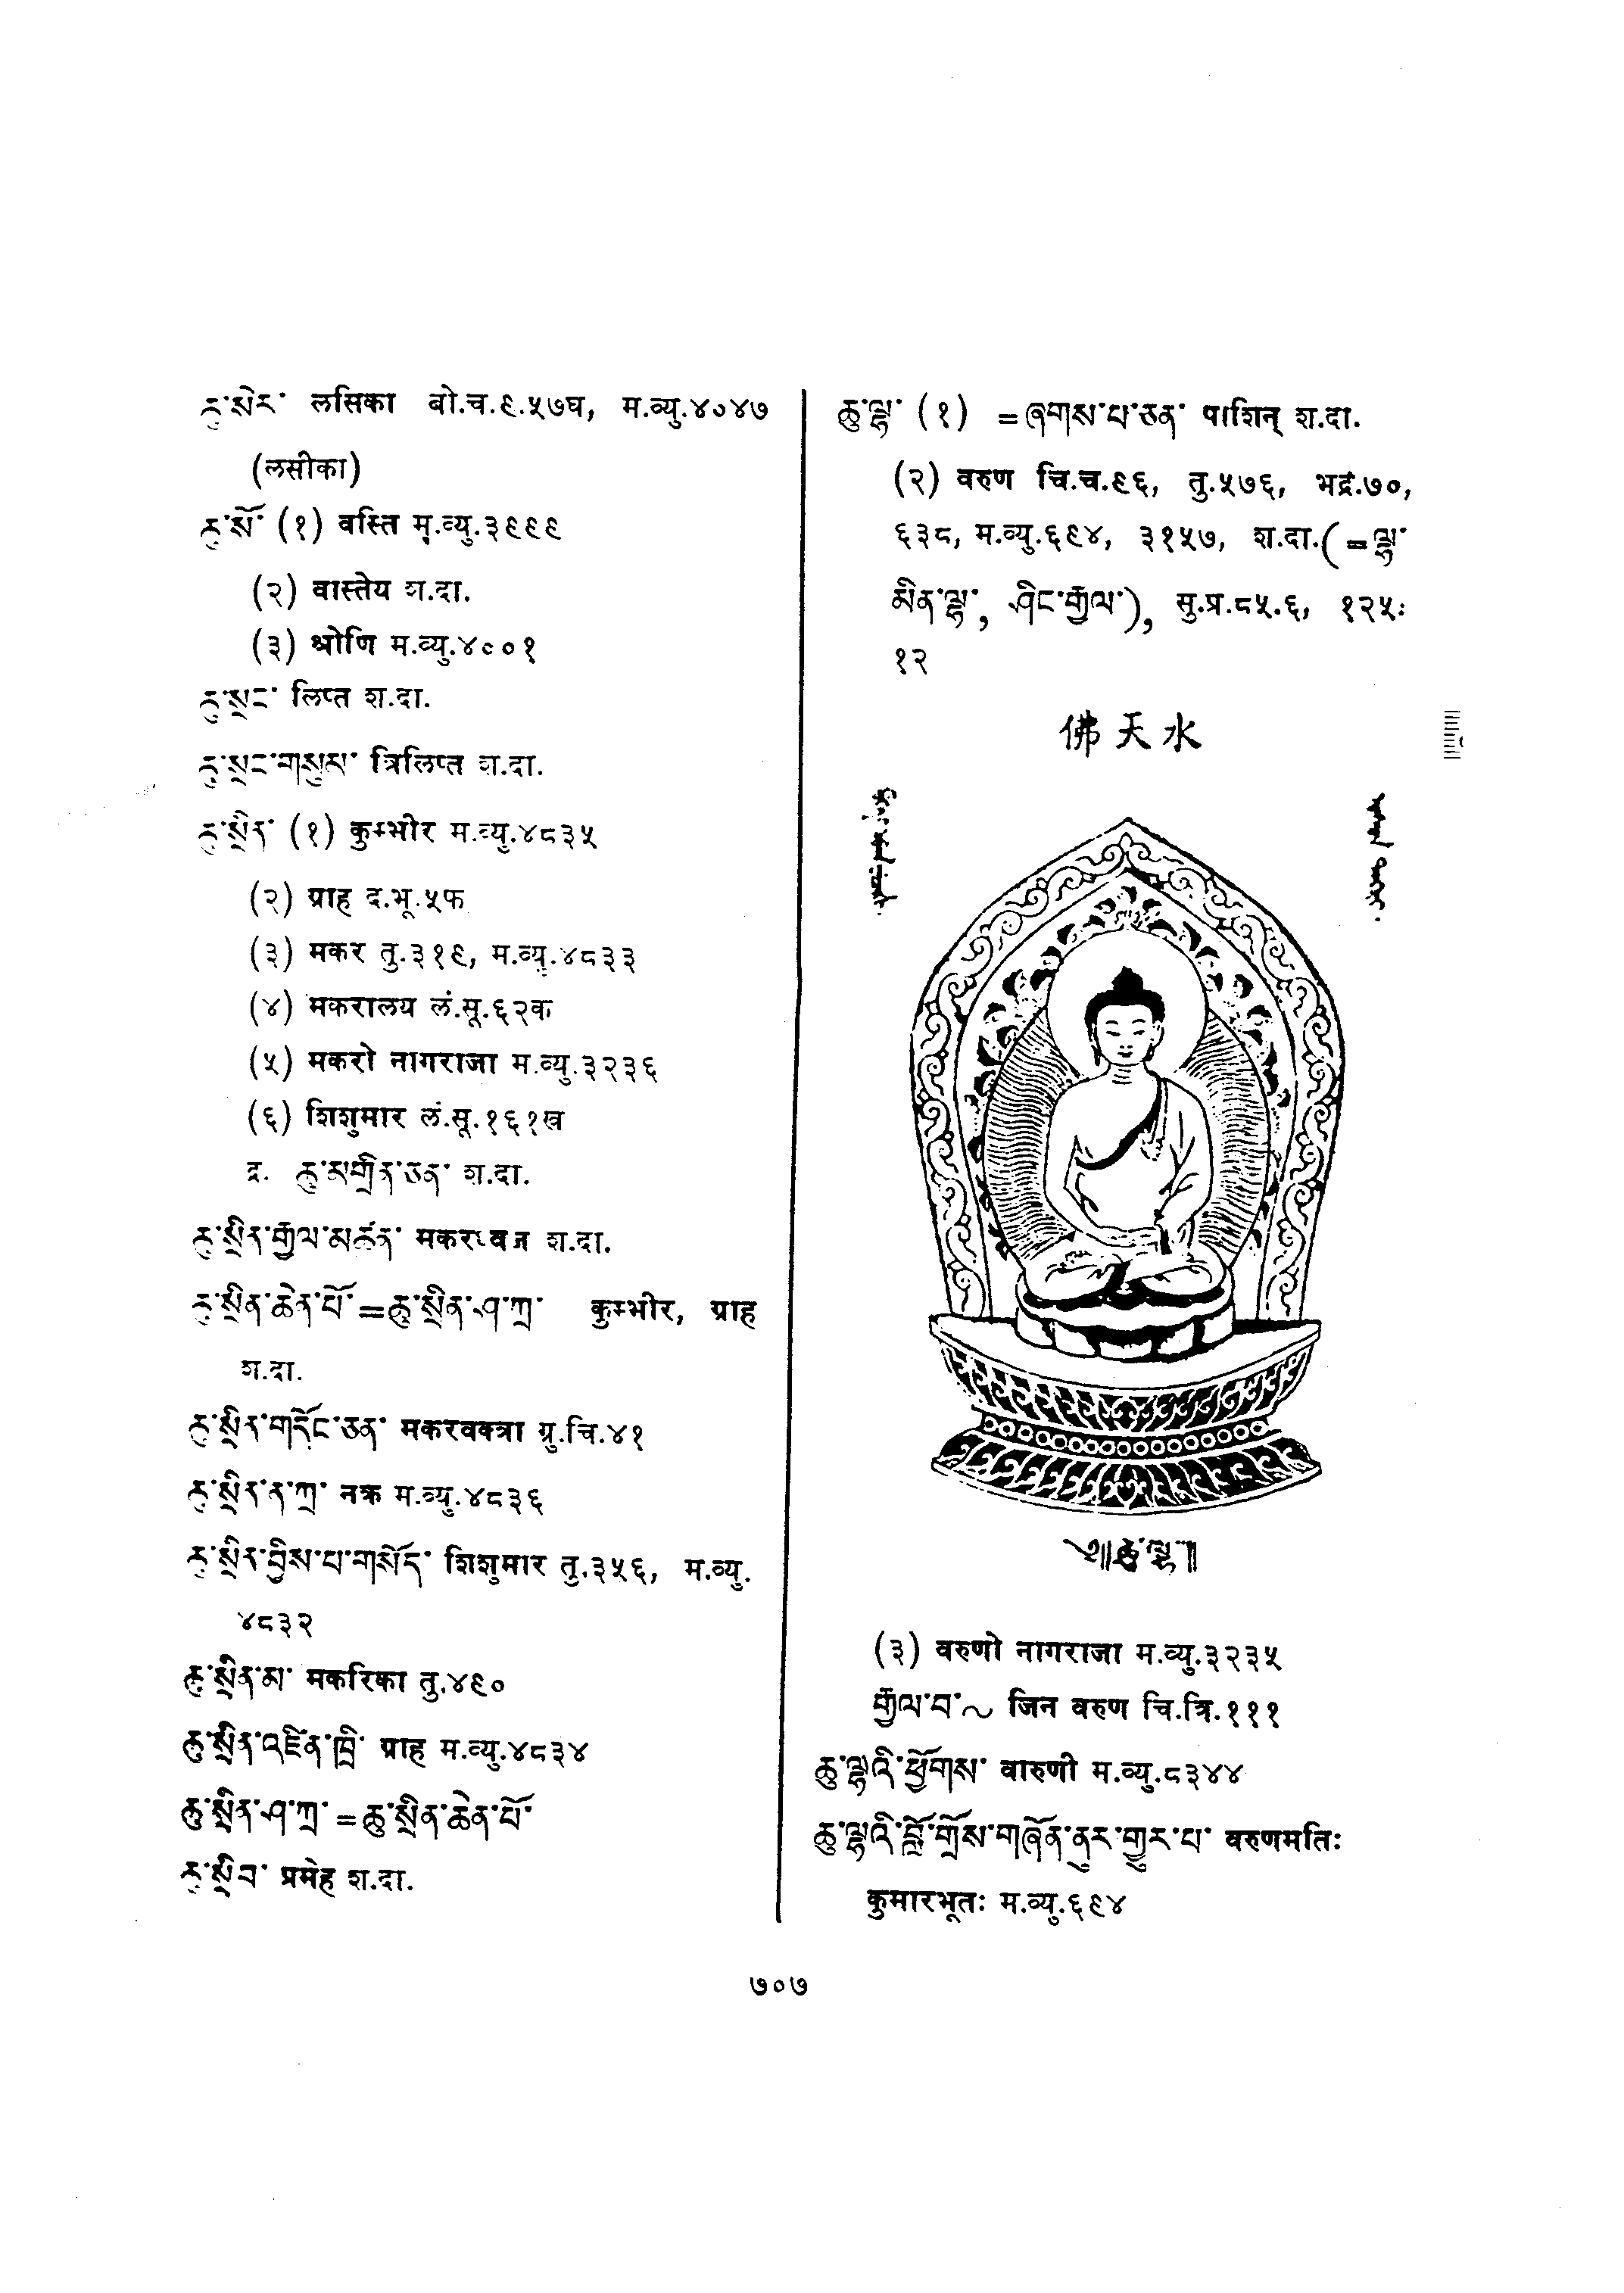 ཆུ་སེར་ लसिका बो.च.९.५७घ, म.व्यु.४०४७
(लसीका)
ཆུ་སོ་ (१) वस्ति म.व्यु.३९९९
(२) वास्तेय श.दा.
(३) श्रोणि म.व्यु.४००१
ཆུ་སྲང་ लिप्त श.दा.
ཆུ་སྲང་གསུམ་ त्रिलिप्त श.दा.
ཆུ་སྲིན་ (१) कुम्भीर म.व्यु.४८३५
(२) ग्राह द.भू.५फ
(३) मकर तु.३१९, म.व्यु.४८३३
(४) मकरालय लं.सू.६२क
(५) मकरो नागराजा म.व्यु.३२३६
(६) शिशुमार लं.सू.१६१ख
द्र. ཆུ་མགྲིན་ཅན་ श.दा.
ཆུ་སྲིན་རྒྱལ་མཚན་ मकरध्वज श.दा.
ཆུ་སྲིན་ཆེན་པོ་=ཆུ་སྲིན་ཤ་ཀྲ་ कुम्भीर, ग्राह
श.दा.
ཆུ་སྲིན་གདོང་ཅན་ मकरवक्त्रा ग्रु.चि.४१
ཆུ་སྲིན་ན་ཀྲ་ नक्र म.व्यु.४८३६
ཆུ་སྲིན་བྱིས་པ་གསོད་ शिशुमार तु.३५६, म.व्यु.
४८३२
ཆུ་སྲིན་མ་ मकरिका तु.४९०
ཆུ་སྲིན་འཛིན་ཁྲི་ ग्राह म.व्यु.४८३४
ཆུ་སྲིན་ཤ་ཀྲ་=ཆུ་སྲིན་ཆེན་པོ་
ཆུ་སྲིབ་ प्रमेह श.दा.
ཆུ་ལྷ་ (१) =ཞགས་པ་ཅན་ पाशिन् श.दा.
(२) वरुण चि.च.९६, तु.५७६, भद्रं.७०,
६३८, म.व्यु.६९४, ३१५७, श.दा.(=ལྷ་
མིན་ལྷ་, ཤིང་རྒྱལ་), सु.प्र.८५.६, १२५:
१२
佛天水
༄༅།།ཆུ་ལྷ།།
(३) वरुणो नागराजा म.व्यु.३२३५
རྒྱལ་བ་~ जिन वरुण चि.त्रि.१११
ཆུ་ལྷའི་ཕྱོགས་ वारुणी म.व्यु.८३४४
ཆུ་ལྷའི་བློ་གྲོས་གཞོན་ནུར་གྱུར་པ་ वरुणमतिः
कुमारभूतः म.व्यु.६९४
७०७